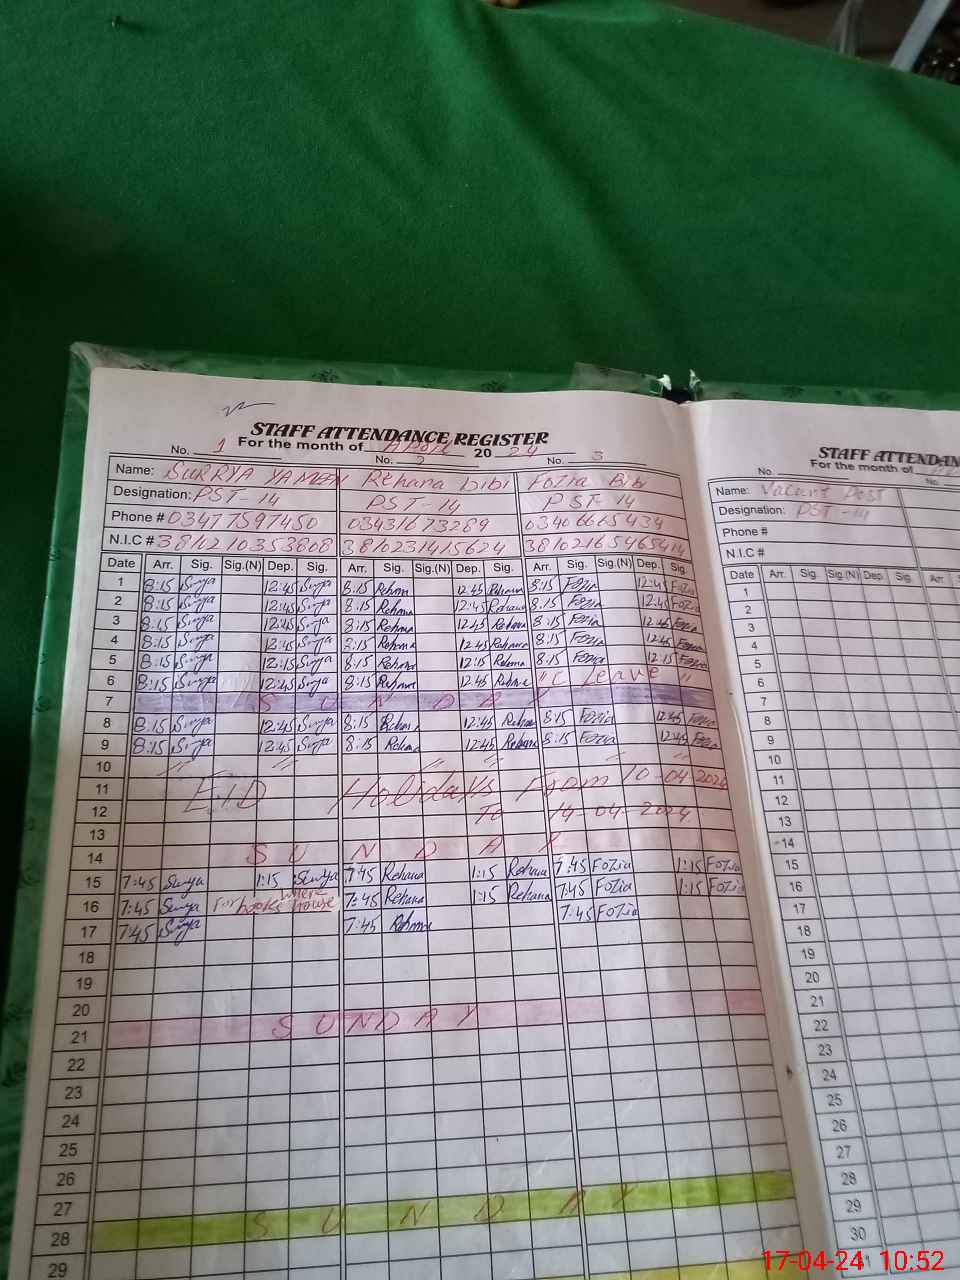 STAFF ATTENDANCE REGISTER
For the month of April 2024
No. 1 No. 2 No. 3
Name: SURRYA YAMEEN Rehana bibi Fozia Bibi
Designation: PST-14 PST-14 PST-14
Phone # 03477597450 03431673289 03406665434
N.I.C # 3810210353808 3810231415624
Date Arr. Sig. Sig.(N) Dep. Sig. Arr. Sig. Sig.(N) Dep. Sig. Arr. Sig. Sig.(N) Dep. Sig.
1 8:15 Surya 12:45 Surya 8:15 Rehana 12:45 Rehana 8:15 Fozia 12:45 Fozia
2 8:15 Surya 12:45 Surya 8:15 Rehana 12:45 Rehana 8:15 Fozia 12:45 Fozia
3 8:15 Surya 12:45 Surya 8:15 Rehana 12:45 Rehana 8:15 Fozia 12:45 Fozia
4 8:15 Surya 12:45 Surya 8:15 Rehana 12:45 Rehana 8:15 Fozia 12:45 Fozia
5 8:15 Surya 12:15 Surya 8:15 Rehana 12:15 Rehana 8:15 Fozia 12:15 Fozia
6 8:15 Surya 12:45 Surya 8:15 Rehana 12:45 Rehana " C Leave "
7 SUNDAY
8 8:15 Surya 12:45 Surya 8:15 Rehana 12:45 Rehana 8:15 Fozia 12:45 Fozia
9 8:15 Surya 12:45 Surya 8:15 Rehana 12:45 Rehana 8:15 Fozia 12:45 Fozia
10
11 EID Holidays From 10-04-2024
12 To 14-04-2024
13
14 SUNDAY
15 7:45 Surya 1:15 Surya 7:45 Rehana 1:15 Rehana 7:45 Fozia 1:15 Fozia
16 7:45 Surya For books where house 7:45 Rehana 1:15 Rehana 7:45 Fozia 1:15 Fozia
17 7:45 Surya 7:45 Rehana 7:45 Fozia
18
19
20
21 SUNDAY
22
23
24
25
26
27
28 SUNDAY
29
STAFF ATTENDAN
For the month of
No. No.
Name: Vacant Post
Designation: PST-14
Phone #
N.I.C #
Date Arr. Sig. Sig.(N) Dep. Sig. Arr. Sig.
1
2
3
4
5
6
7
8
9
10
11
12
13
14
15
16
17
18
19
20
21
22
23
24
25
26
27
28
29
30
17-04-24 10:52